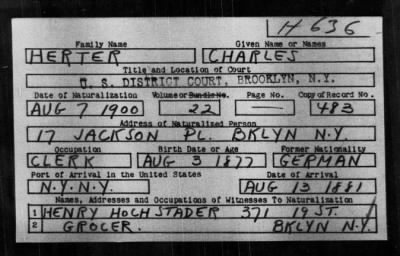 H 636
Family Name Given Name or Names
HERTER CHARLES
Title and Location of Court
U. S. DISTRICT COURT, BROOKLYN, N.Y.
Date of Naturalization Volume or Bundle No. Page No. Copy of Record No.
AUG 7 1900 22 — 483
Address of Naturalized Person
17 JACKSON PL. BKLYN N.Y.
Occupation Birth Date or Age Former Nationality
CLERK AUG 3 1877 GERMAN
Port of Arrival in the United States Date of Arrival
N.Y. N.Y. AUG 13 1881
Names, Addresses and Occupations of Witnesses To Naturalization
1 HENRY HOCHSTADER 371 19 ST.
2 GROCER. BKLYN N.Y.